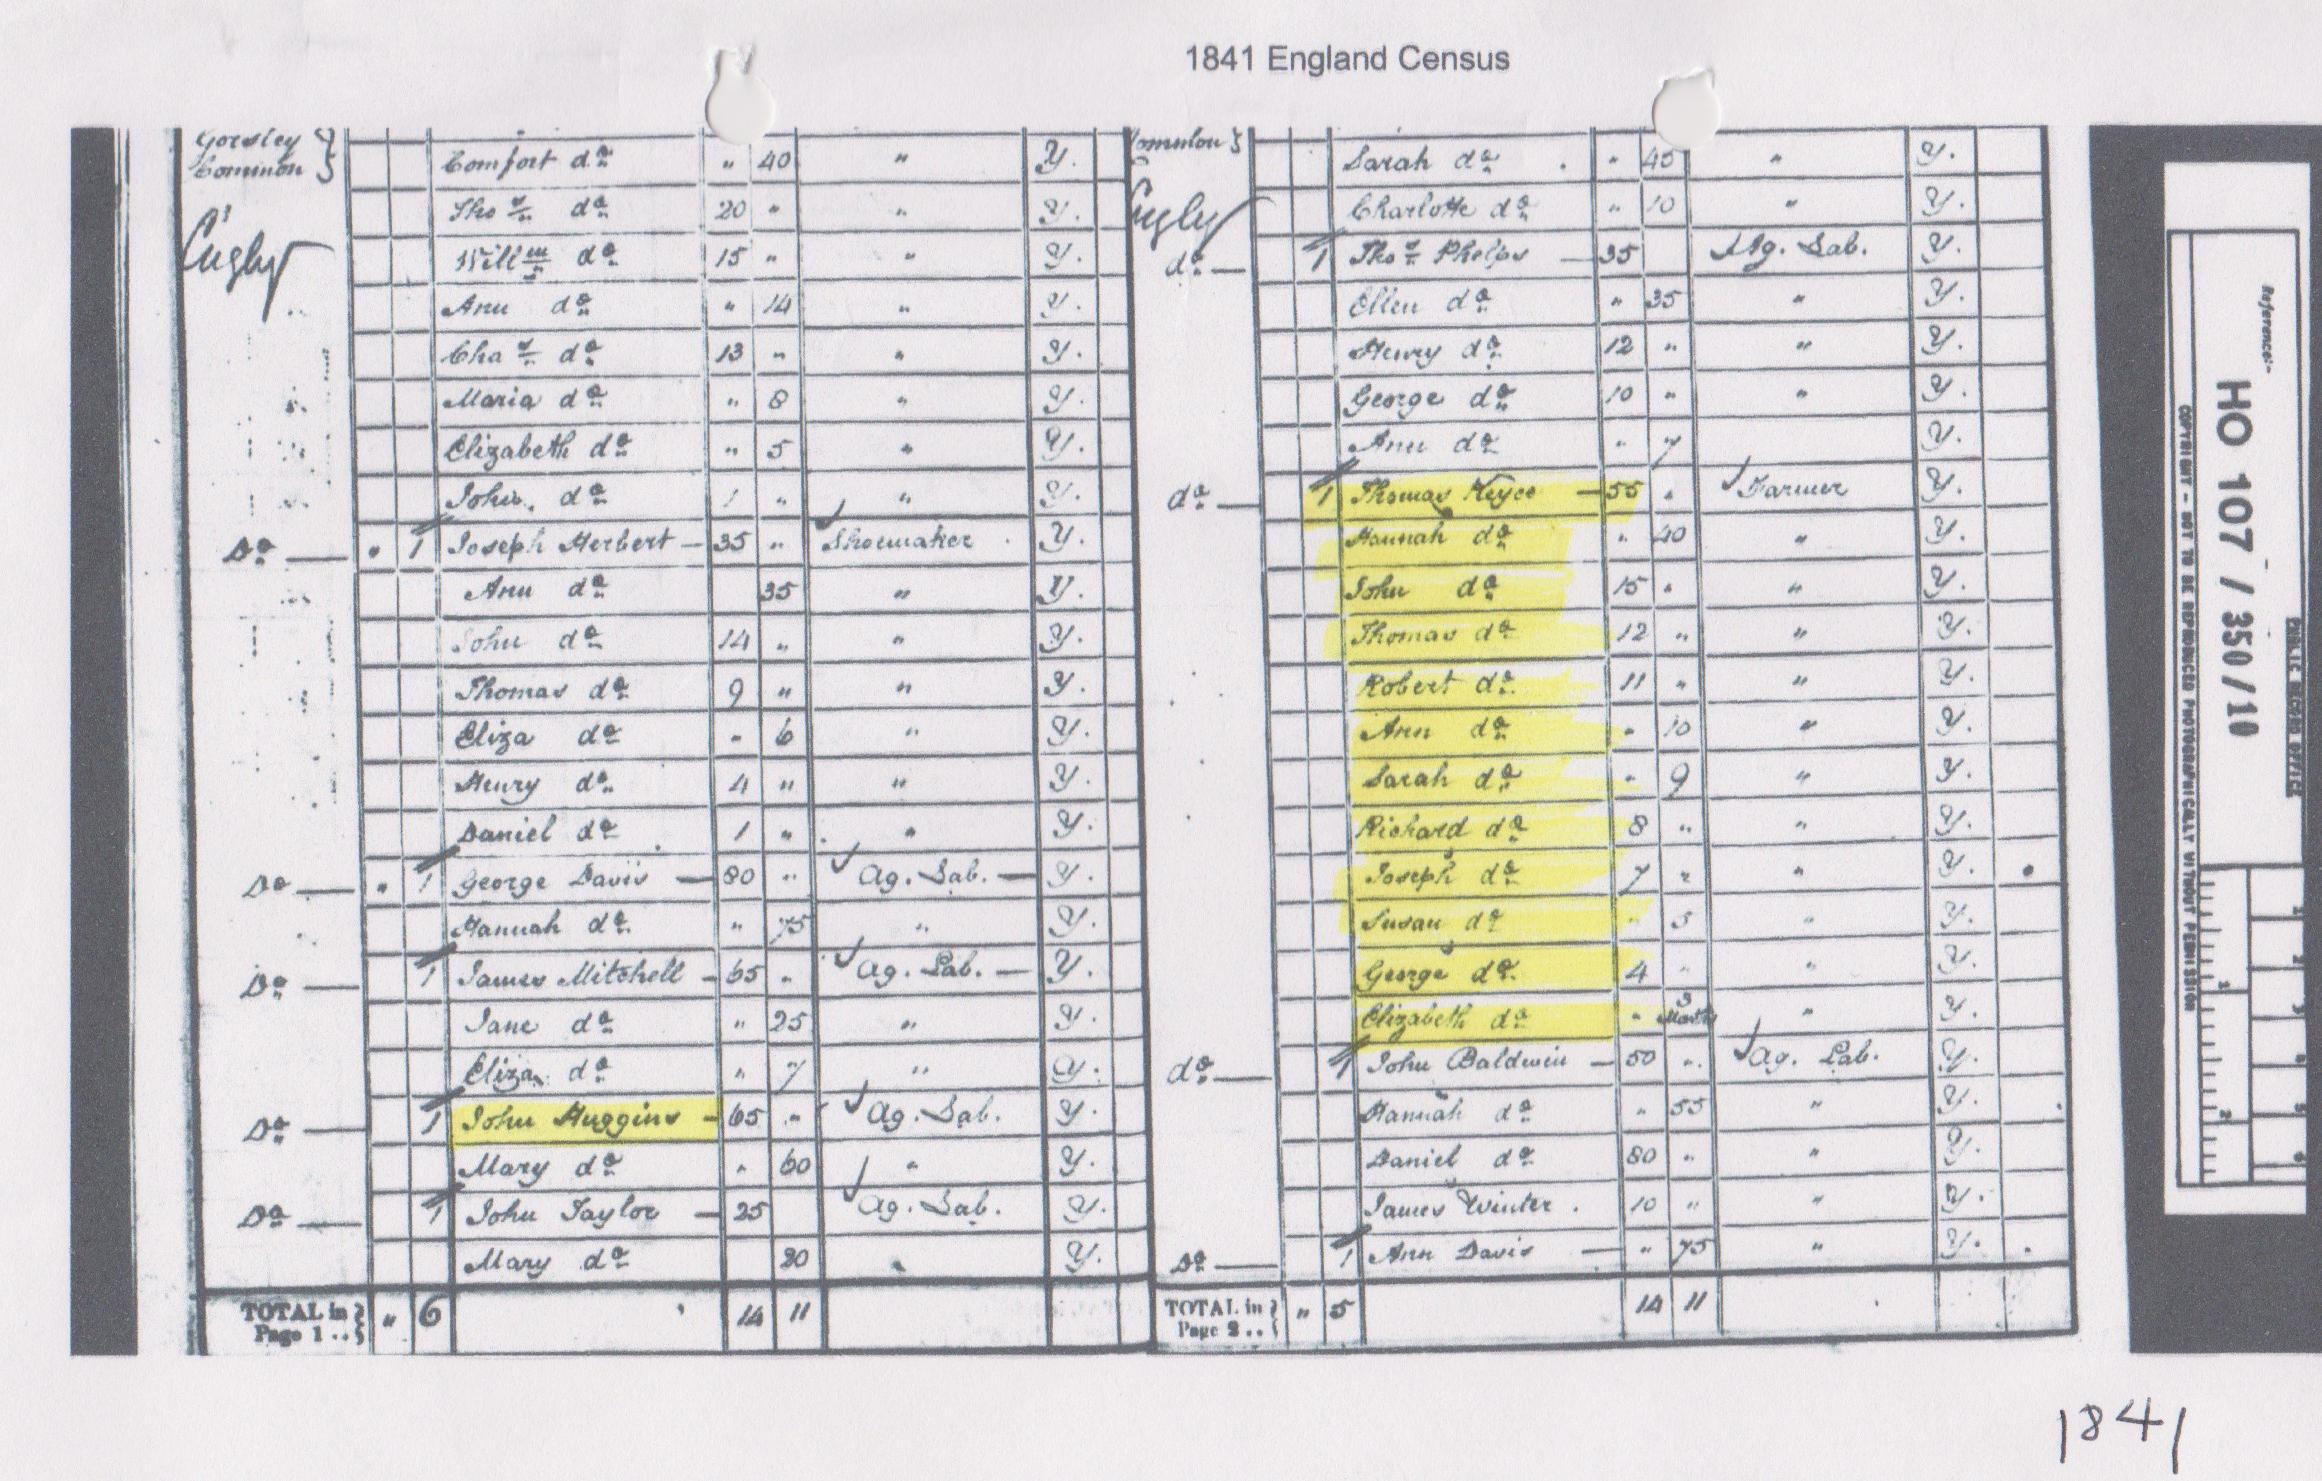 1841 England Census
Gorsley }
Common }
Comfort do " 40 " Y.
Thos do 20 " " Y.
Willm do 15 " " Y.
Ann do " 14 " Y.
Chas do 13 " " Y.
Maria do " 8 " Y.
Elizabeth do " 5 " Y.
John do 1 " " Y.
Do — " 1 Joseph Herbert — 35 " Shoemaker Y.
Ann do 35 " Y.
John do 14 " " Y.
Thomas do 9 " " Y.
Eliza do " 6 " Y.
Henry do 4 " " Y.
Daniel do 1 " " Y.
Do — " 1 George Davis — 80 " Ag. Lab. — Y.
Hannah do " 75 " Y.
Do — 1 James Mitchell — 65 " Ag. Lab. — Y.
Jane do " 25 " Y.
Eliza do " 7 " Y.
Do — 1 John Huggins — 65 " Ag. Lab. Y.
Mary do " 60 " Y.
Do — 1 John Taylor — 25 Ag. Lab. Y.
Mary do 20 Y.
TOTAL in } Page 1 .. } " 6 14 11
Common }
Sarah do " 45 " Y.
Charlotte do " 10 " Y.
do — 1 Thos Phelps — 35 Ag. Lab. Y.
Ellen do " 35 " Y.
Henry do 12 " " Y.
George do 10 " " Y.
Ann do " 7 Y.
do — 1 Thomas Keyce — 55 " Farmer Y.
Hannah do " 40 " Y.
John do 15 " " Y.
Thomas do 12 " " Y.
Robert do 11 " " Y.
Ann do " 10 " Y.
Sarah do " 9 " Y.
Richard do 8 " " Y.
Joseph do 7 " " Y.
Susan do " 5 " Y.
George do 4 " " Y.
Elizabeth do " 3 Months " Y.
do — 1 John Baldwin — 50 " Ag. Lab. Y.
Hannah do " 55 " Y.
Daniel do 80 " " Y.
James Winter . 10 " " Y.
Do — 1 Ann Davis — " 75 " Y.
TOTAL in } Page 2 .. } " 5 14 11
Reference:-
HO 107 / 350 / 10
PUBLIC RECORD OFFICE
COPYRIGHT - NOT TO BE REPRODUCED PHOTOGRAPHICALLY WITHOUT PERMISSION
1
2
1
2
3
4
5
6
1841